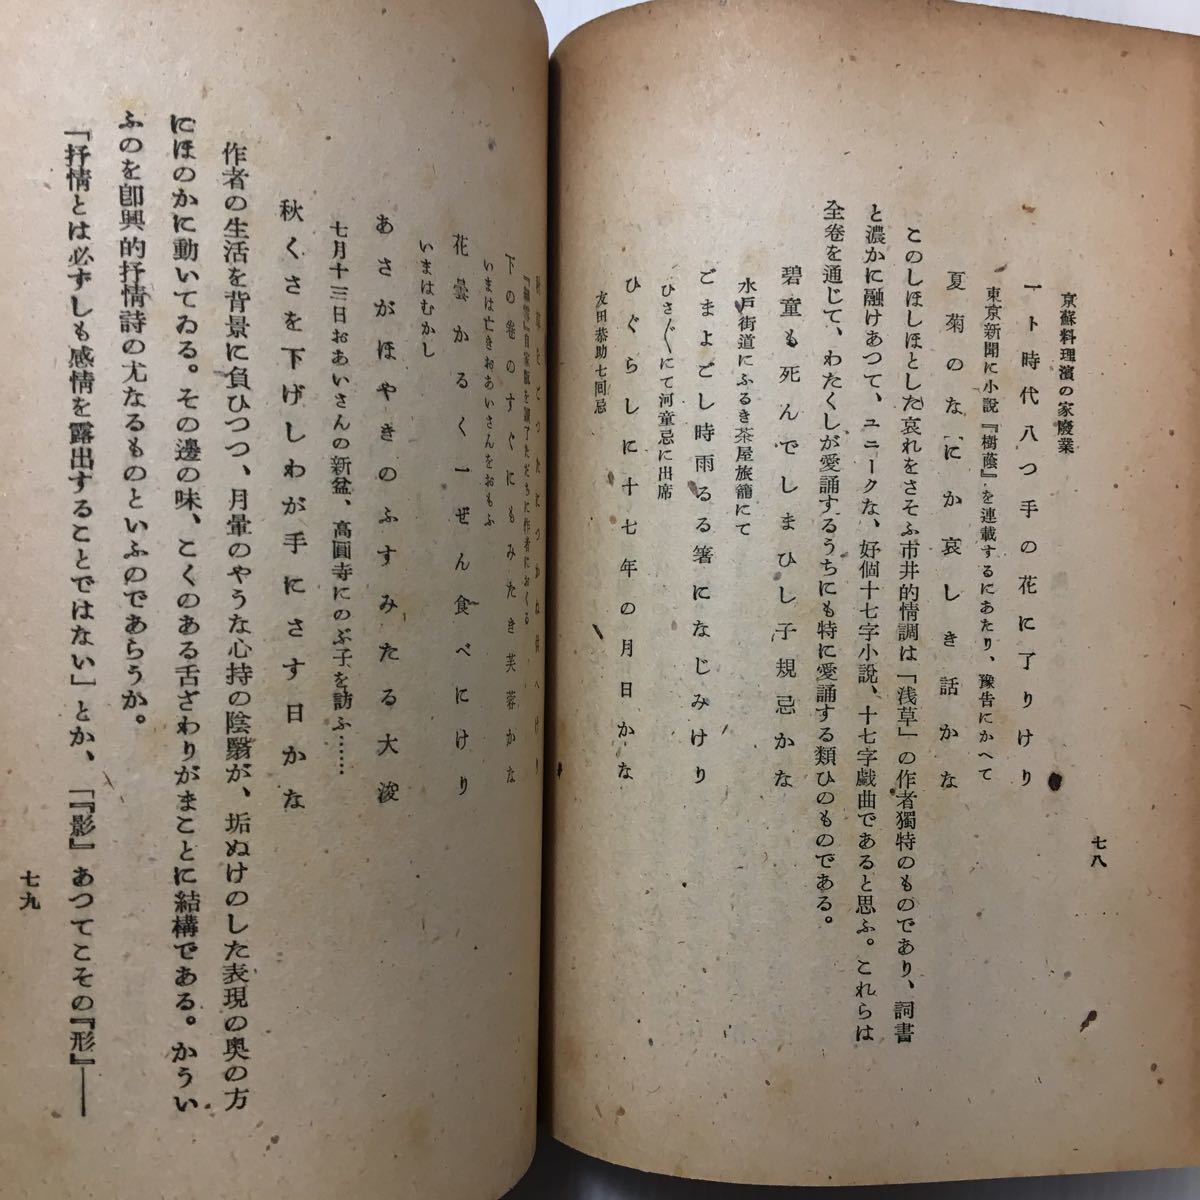 七八
京蘇料理濱の家廢業
一ト時代八つ手の花に了りけり
東京新聞に小說『樹蔭』を連載するにあたり、豫告にかへて
夏菊のなにか哀しき話かな
このしほしほとした哀れをさそふ市井的情調は「浅草」の作者獨特のものであり、詞書
と濃かに融けあつて、ユニークな、好個十七字小說、十七字戯曲であると思ふ。これらは
全卷を通じて、わたくしが愛誦するうちにも特に愛誦する類ひのものである。
碧童も死んでしまひし子規忌かな
水戸街道にふるき茶屋旅籠にて
ごまよごし時雨るる箸になじみけり
ひさ〴〵にて河童忌に出席
ひぐらしに十七年の月日かな
友田恭助七回忌
秋草をとつたにつかね供へけり
自家版を讀了ただちに作者におくる
下の卷のすぐにもみたき芙蓉かな
いまは亡きおあいさんをおもふ
花曇かるく一ぜん食べにけり
いまはむかし
あさがほやきのふすみたる大浚
七月十三日おあいさんの新盆、高圓寺にのぶ子を訪ふ……
秋くさを下げしわが手にさす日かな
作者の生活を背景に負ひつつ、月暈のやうな心持の陰翳が、垢ぬけのした表現の奥の方
にほのかに動いてゐる。その邊の味、こくのある舌ざわりがまことに結構である。かうい
ふのを卽興的抒情詩の尤なるものといふのであらうか。
「抒情とは必ずしも感情を露出することではない」とか、「『影』あつてこその『形』――
七九